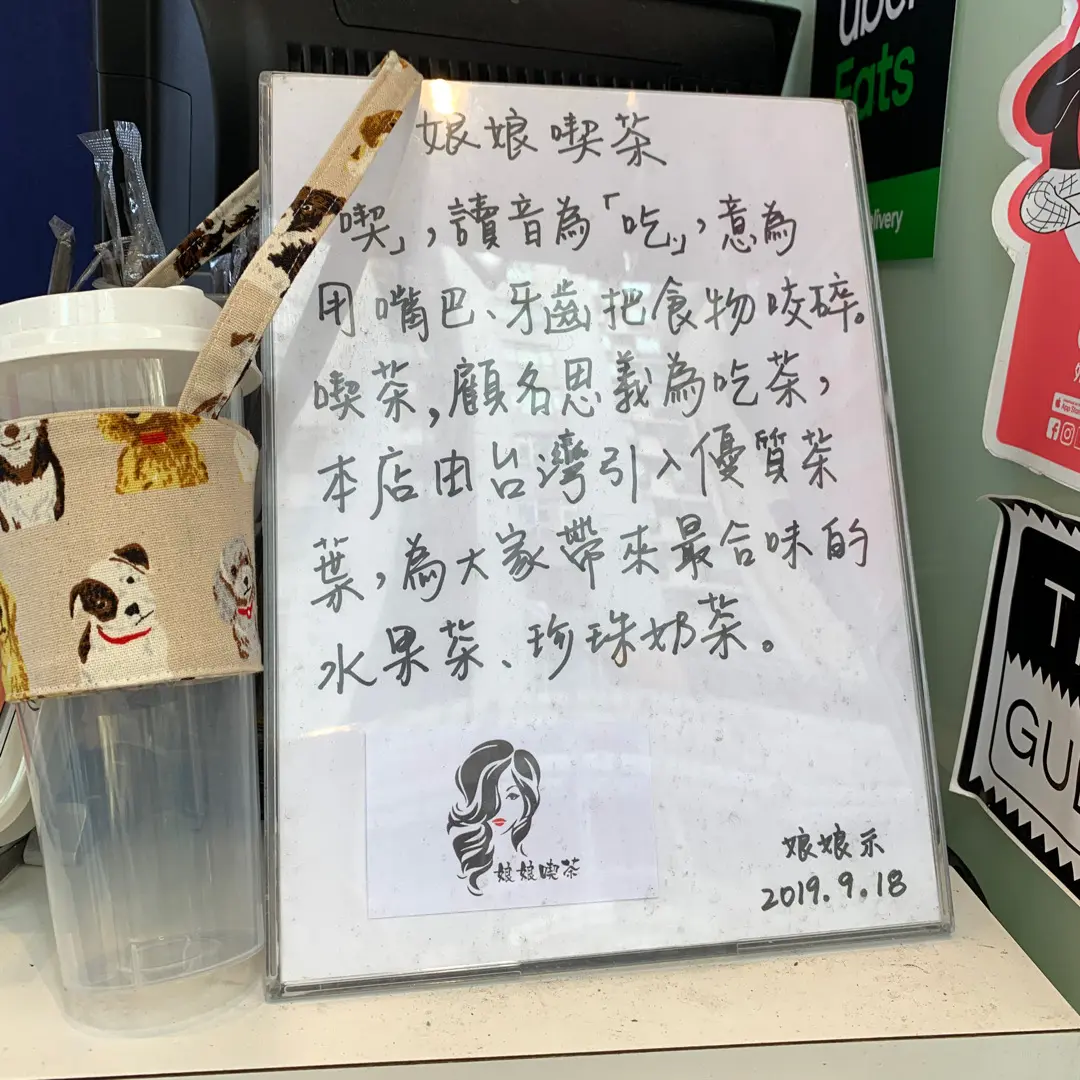 娘娘喫茶
喫」,讀音為「吃」,意為
用嘴巴、牙齒把食物咬碎。
喫茶,顧名思義為吃茶,
本店由台灣引入優質茶
葉,為大家帶來最合味的
水果茶、珍珠奶茶。
娘娘喫茶
娘娘示
2019.9.18
Uber
Eats
App Store
GU